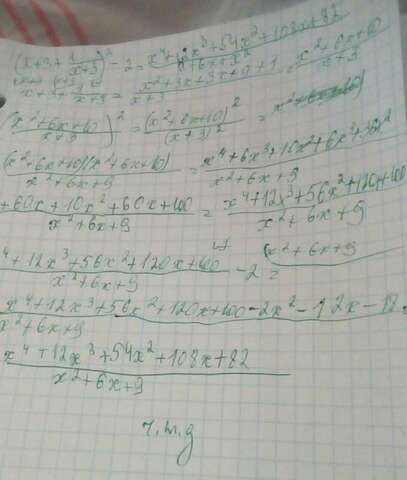 (x+3+1/(x+3))² - 2 = (x⁴+12x³+54x²+108x+82)/(x²+6x+9)
x+3+1/(x+3) = (x²+3x+3x+9+1)/(x+3) = (x²+6x+10)/(x+3)
((x²+6x+10)/(x+3))² = (x²+6x+10)²/(x+3)² =
(x²+6x+10)(x²+6x+10)/(x²+6x+9) = (x⁴+6x³+10x²+6x³+36x²
+60x+10x²+60x+100)/(x²+6x+9) = (x⁴+12x³+56x²+120x+100)/(x²+6x+9)
(x⁴+12x³+56x²+120x+100)/(x²+6x+9) - 2 = (x²+6x+9
(x⁴+12x³+56x²+120x+100-2x²-12x-18)/(x²+6x+9)
(x⁴+12x³+54x²+108x+82)/(x²+6x+9)
ч.т.д